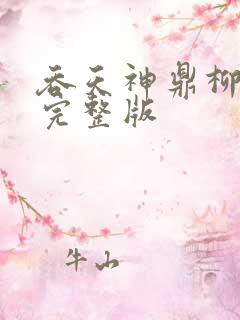 吞天神鼎柳
完整版
牛山